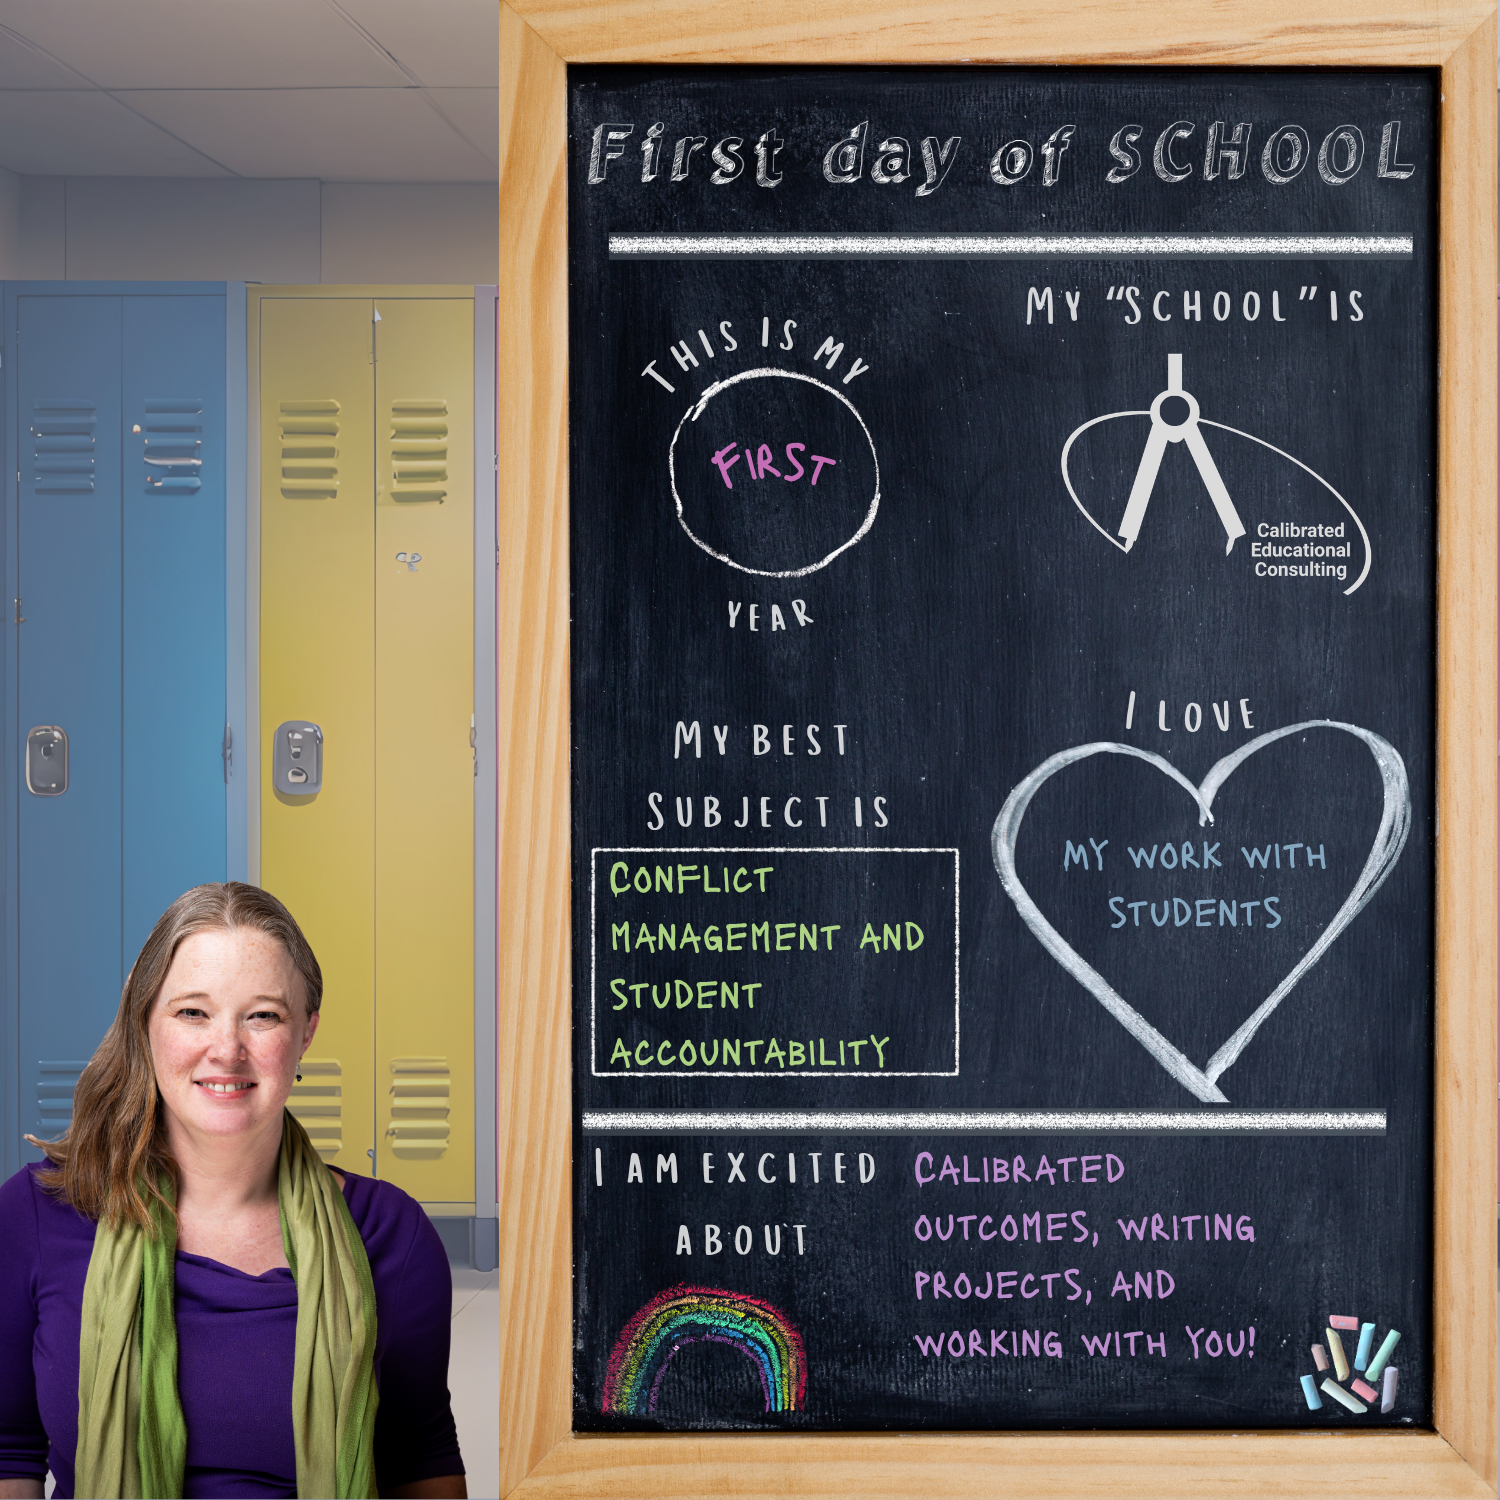 First day of SCHOOL
THIS IS MY
FIRST
YEAR
MY "SCHOOL" IS
Calibrated
Educational
Consulting
MY BEST
SUBJECT IS
CONFLICT
MANAGEMENT AND
STUDENT
ACCOUNTABILITY
I LOVE
MY WORK WITH
STUDENTS
I AM EXCITED
ABOUT
CALIBRATED
OUTCOMES, WRITING
PROJECTS, AND
WORKING WITH YOU!